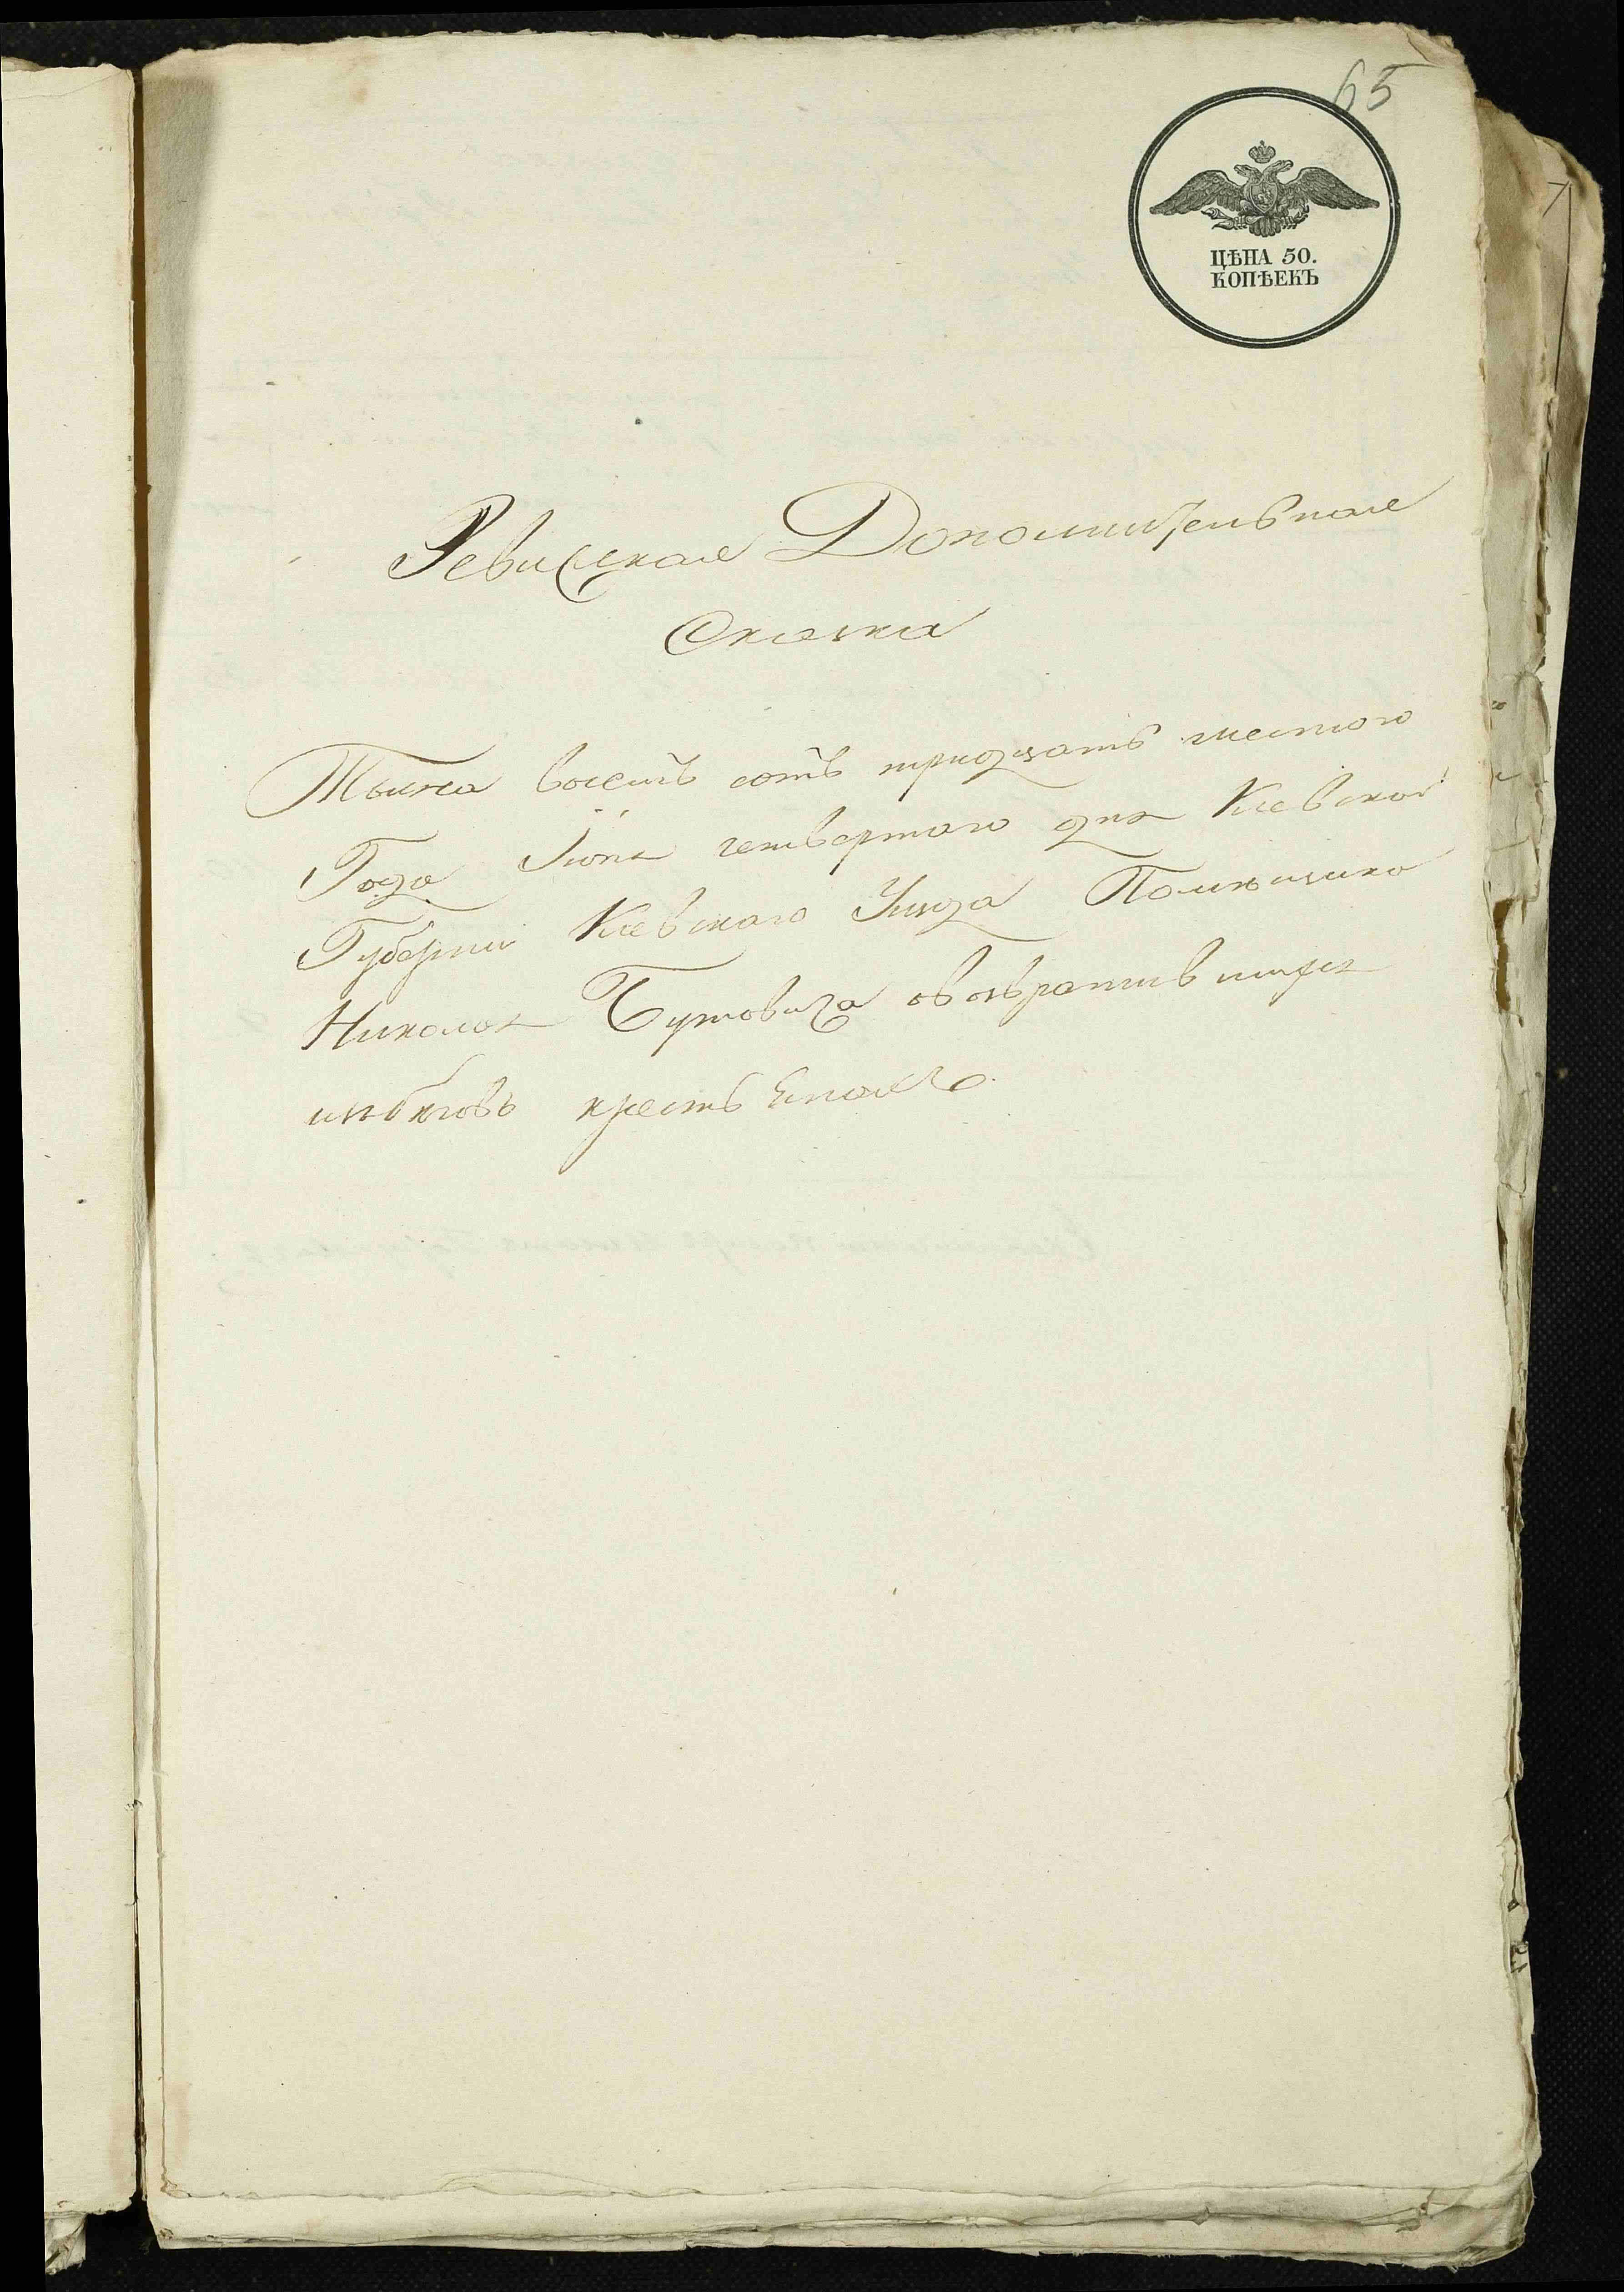 65
ЦѢНА 50.
КОПѢЕКЪ
Ревиская Дополнительная
Скаска
Тысеча восемъ сотъ тридцать шестого
Года Июня четвертаго дня Киевской
Губернии Киевскаго Уѣзда Помѣщика
Николая Бутовича овозвратившихся
изъ бѣговъ крестьянахъ